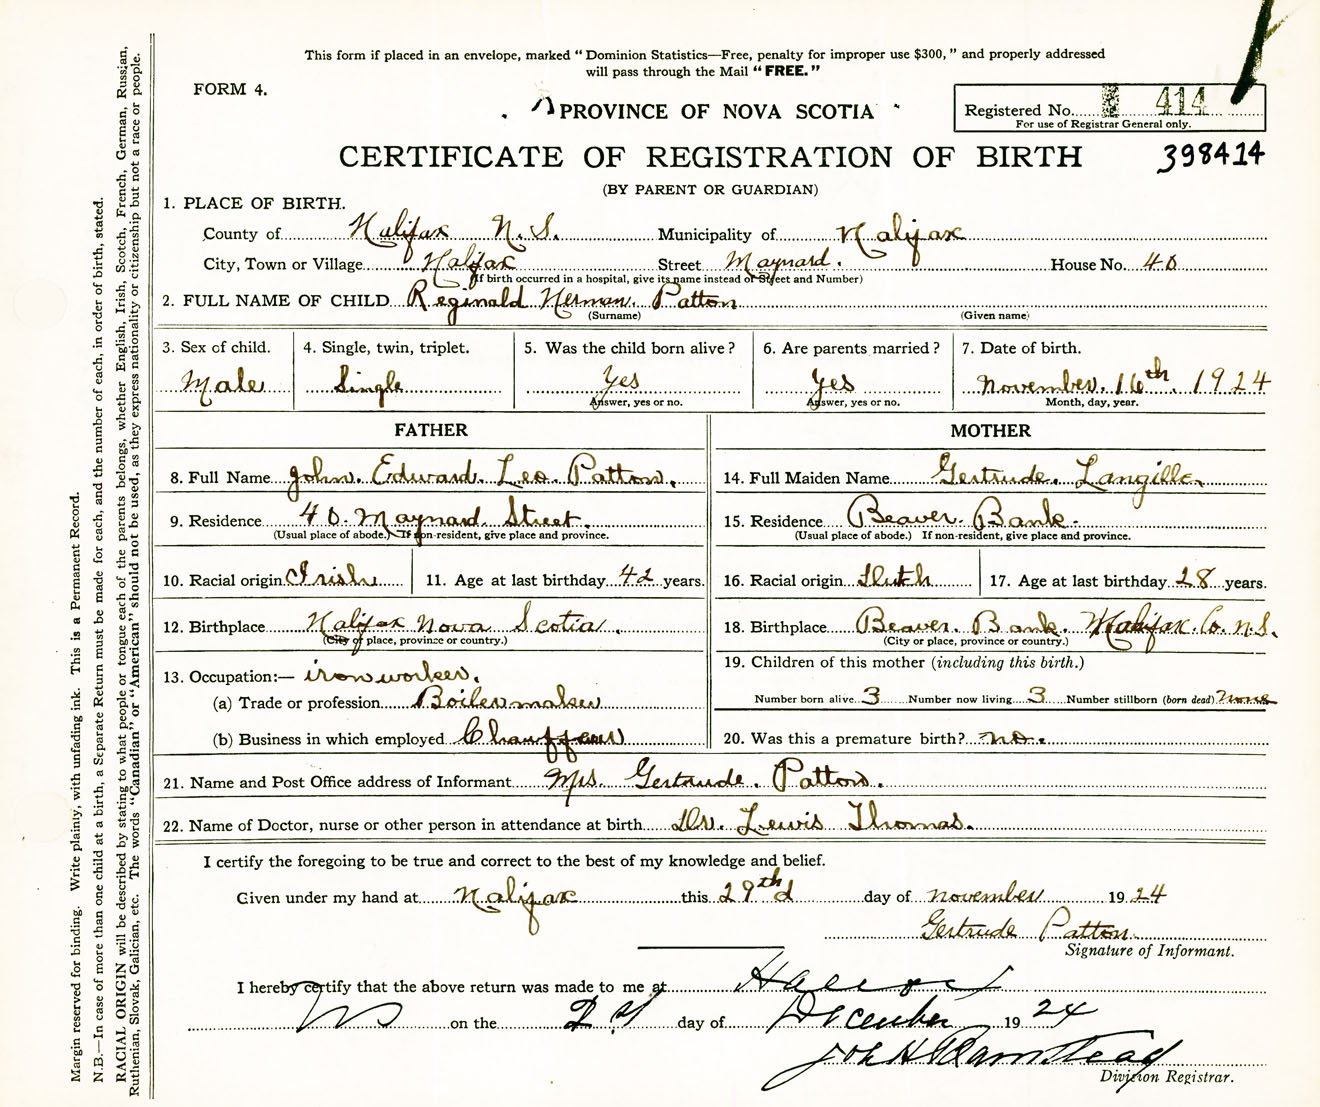 This form if placed in an envelope, marked "Dominion Statistics—Free, penalty for improper use $300," and properly addressed
will pass through the Mail "FREE."
FORM 4.
PROVINCE OF NOVA SCOTIA
Registered No. 414
For use of Registrar General only.
CERTIFICATE OF REGISTRATION OF BIRTH
398414
(BY PARENT OR GUARDIAN)
1. PLACE OF BIRTH.
County of Halifax N.S. Municipality of Halifax
City, Town or Village Halifax Street Maynard. House No. 40
(If birth occurred in a hospital, give its name instead of Street and Number)
2. FULL NAME OF CHILD Reginald Herman. Patton
(Surname) (Given name)
3. Sex of child. 4. Single, twin, triplet. 5. Was the child born alive? 6. Are parents married? 7. Date of birth.
Male Single Yes Yes November. 16th. 1924
Answer, yes or no. Answer, yes or no. Month, day, year.
FATHER MOTHER
8. Full Name John. Edward. Leo. Patton. 14. Full Maiden Name Gertrude. Langille.
9. Residence 40. Maynard. Street. 15. Residence Beaver. Bank.
(Usual place of abode.) If non-resident, give place and province. (Usual place of abode.) If non-resident, give place and province.
10. Racial origin Irish 11. Age at last birthday 42 years. 16. Racial origin Dutch 17. Age at last birthday 28 years.
12. Birthplace Halifax Nova Scotia. 18. Birthplace Beaver. Bank. Halifax. Co. N.S.
(City or place, province or country.) (City or place, province or country.)
19. Children of this mother (including this birth.)
13. Occupation:— iron worker.
(a) Trade or profession Boilermaker Number born alive 3 Number now living 3 Number stillborn (born dead) none
(b) Business in which employed Chauffeur 20. Was this a premature birth? no.
21. Name and Post Office address of Informant Mrs. Gertrude. Patton.
22. Name of Doctor, nurse or other person in attendance at birth Dr. Lewis Thomas.
I certify the foregoing to be true and correct to the best of my knowledge and belief.
Given under my hand at Halifax this 29th d day of november 1924
Gertrude Patton.
Signature of Informant.
I hereby certify that the above return was made to me at
NS on the day of December 1924
Division Registrar.
Margin reserved for binding. Write plainly, with unfading ink. This is a Permanent Record.
N.B.—In case of more than one child at a birth, a Separate Return must be made for each, and the number of each, in order of birth, stated.
RACIAL ORIGIN will be described by stating to what people or tongue each of the parents belongs, whether English, Irish, Scotch, French, German, Russian,
Ruthenian, Slovak, Galician, etc. The words "Canadian" or "American" should not be used, as they express nationality or citizenship but not a race or people.